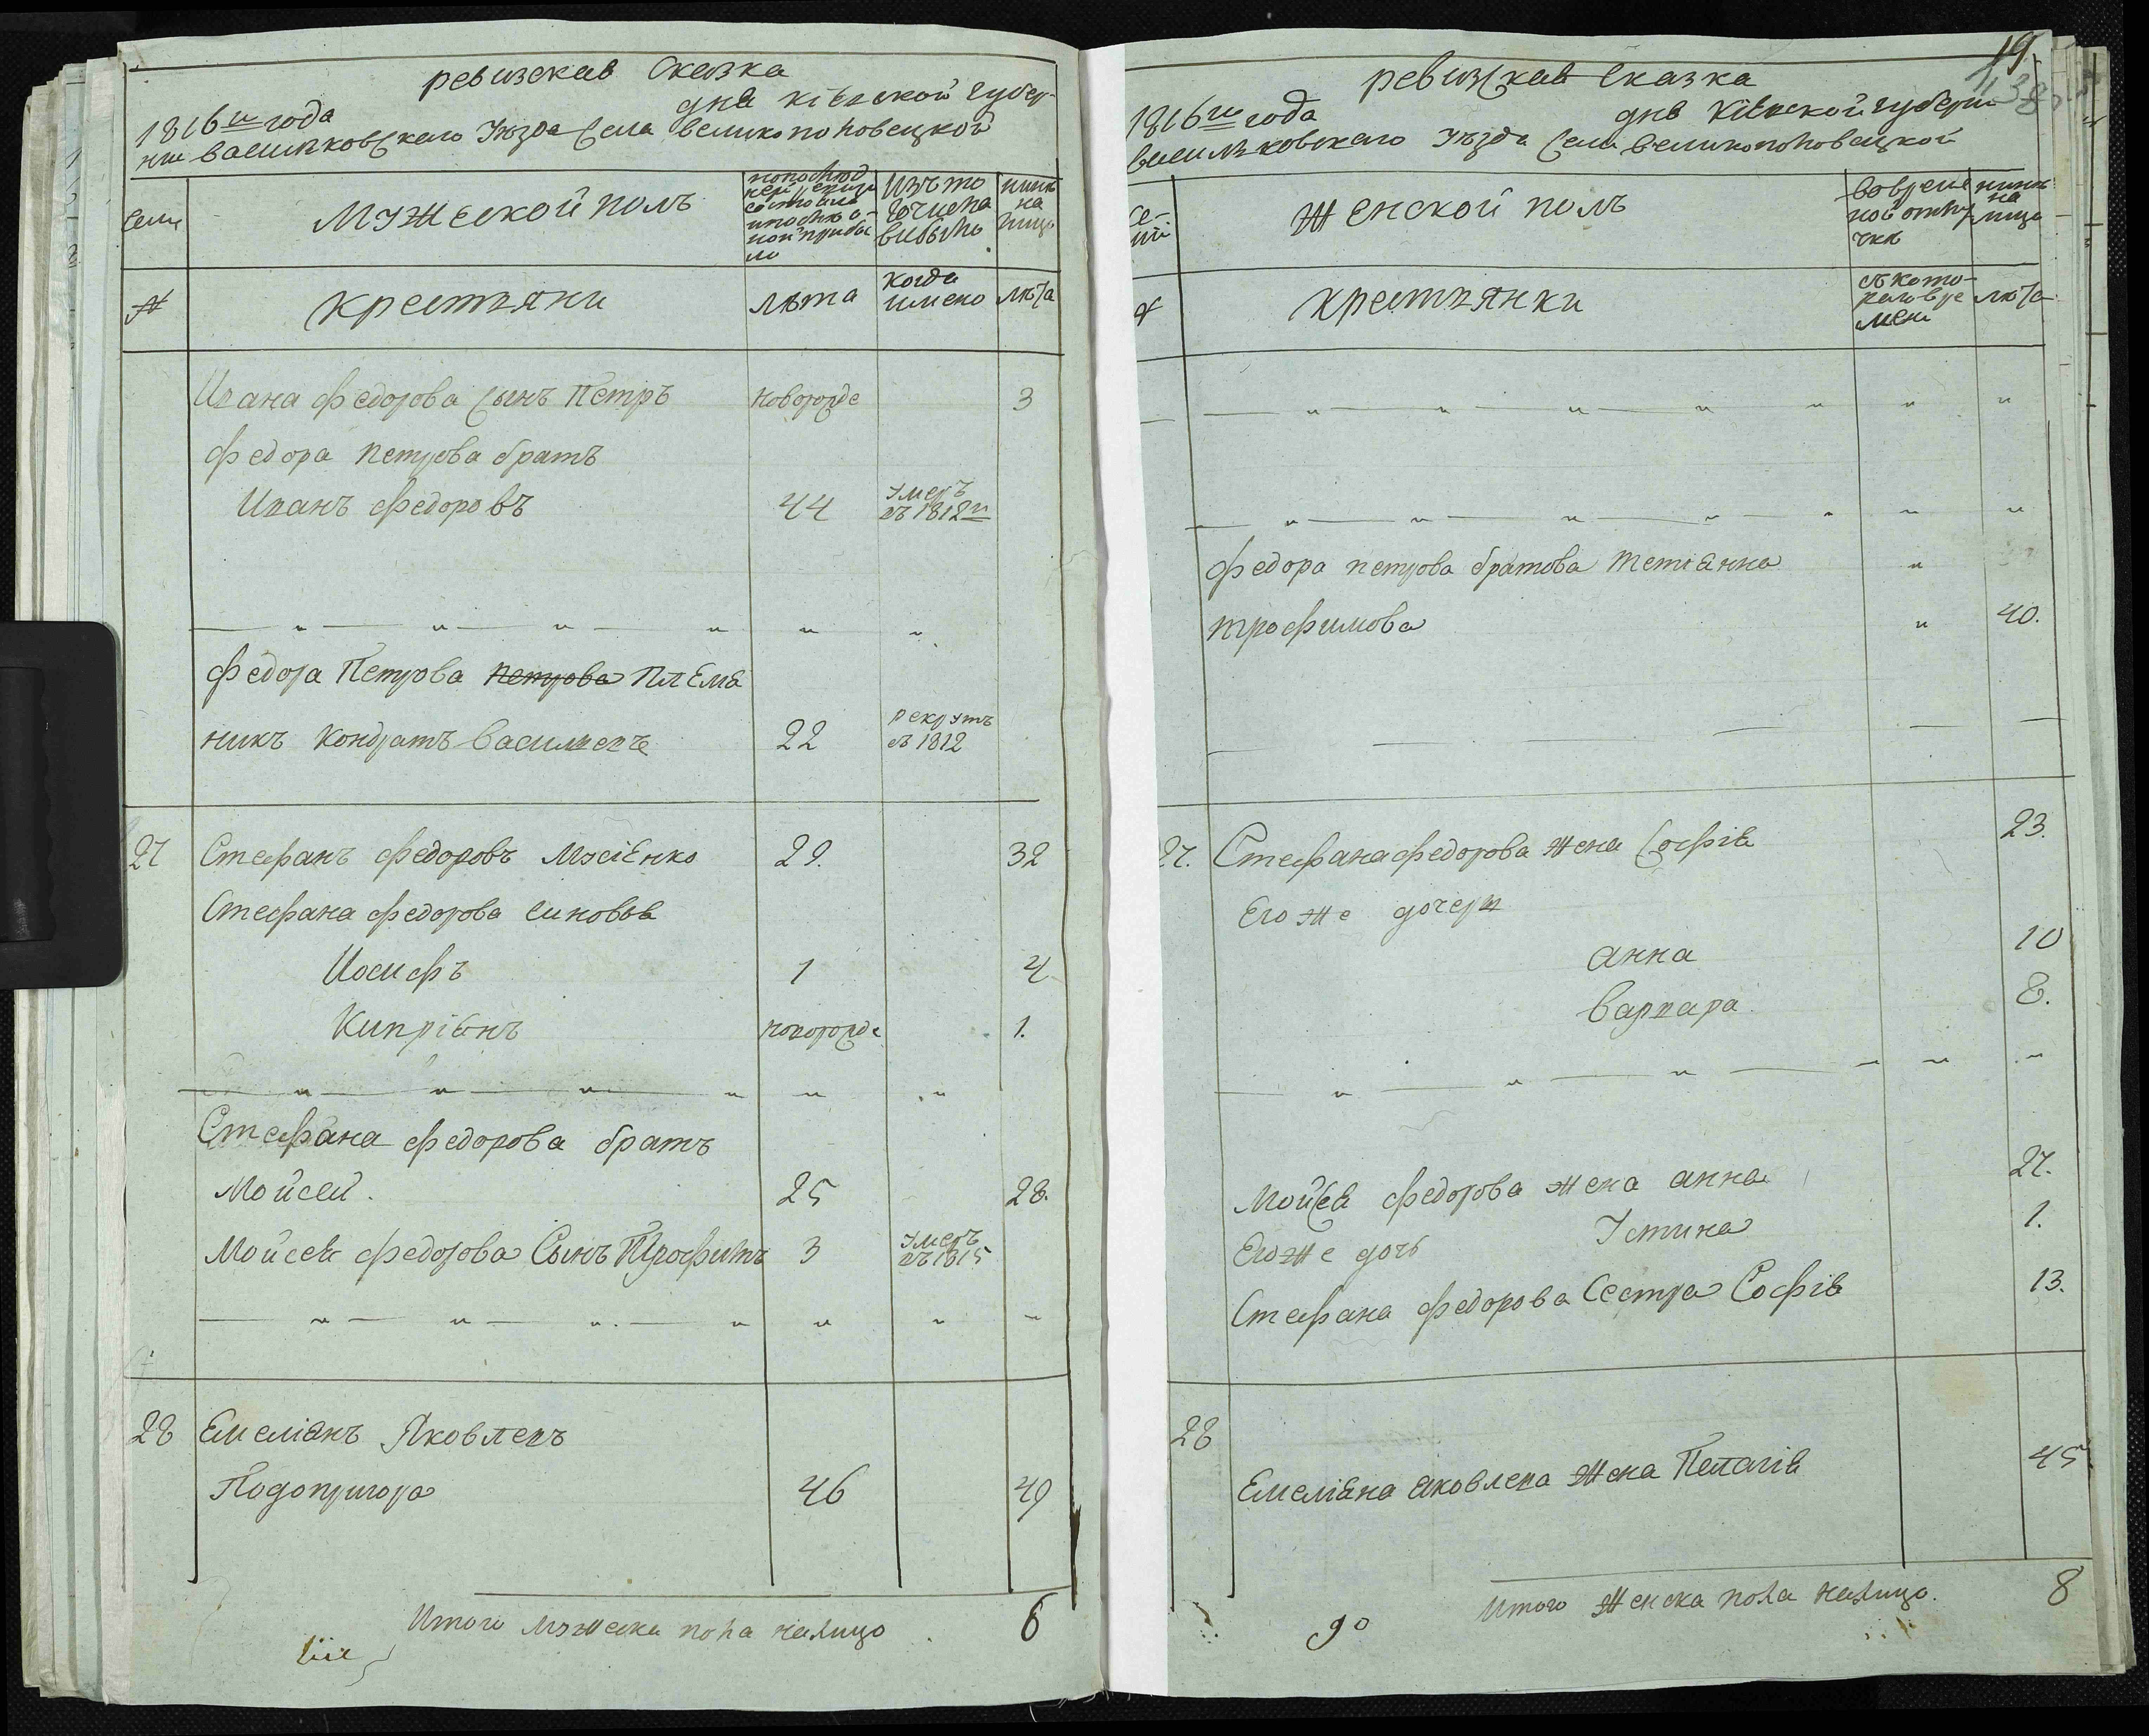 ревизская сказка
1816го года
дня кіевской губер-
нии василковскаго Уезда села великополовецкой
семи
Мужеской полъ
изъ то
числа
выбыло
нынѣ
на
лицо
№
крестьяни
лѣта
когда
имено
лѣта
Ивана федорова сынъ Петръ
новорожде
3
федора петрова братъ
Иванъ федоровъ
44
умеръ
въ 1812го
федора Петрова петрова Племя
никъ кондратъ василиевъ
22
рекрутъ
въ 1812
27
Стефанъ федоровъ Мусіенко
29.
32
Стефана федорова синовья
Иосифъ
1
4
Кипріянъ
новорожде
1.
Стефана федорова братъ
Мойсей.
25
28.
Мойсея федорова Сынъ Трофимъ
3
умеръ
въ 1815
28
Емеліянъ Яковлевъ
Подопригора
46
49
Итого мужеска пола налицо
6
19.
ревизская сказка
1816го года
дня Кіевской губерни
василковскаго Уезда села великополовецкой
се-
мі
Женской полъ
во време
ной отлу
чкѣ
нинѣ
на
лицо
№
крестьянки
съ кото-
раго вре
мени
лѣта
федора петрова братова тетіянна
трофимова
40.
27.
Стефана федорова жена Софія
23.
Его же дочери
анна
10
варвара
8.
Мойсея федорова жена анна
27.
Его же дочь
Устина
1.
Стефана федорова Сестра Софія
13.
28
Емеліяна яковлева жена Пелагія
45
Итого женска пола налицо.
8